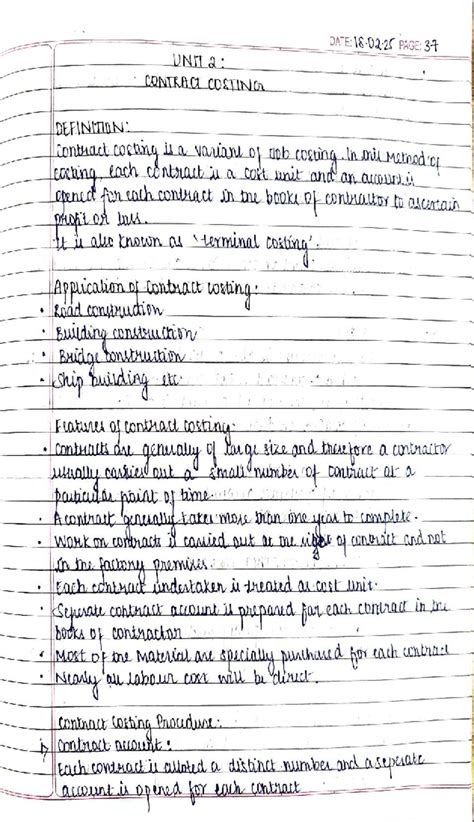 DATE: 18.02.25 PAGE: 37
UNIT 2:
CONTRACT COSTING
DEFINITION:
Contract costing is a variant of Job costing. In this Method of
costing each contract is a cost unit and an account is
opened for each contract in the books of contractor to ascertain
profit or loss.
It is also known as 'terminal costing'.
Application of Contract costing:
• Road construction
• Building construction
• Bridge construction
• Ship building etc
Features of contract costing:
• Contracts are generally of large size and therefore a contractor
usually carries out a small number of contract at a
particular point of time.
• A contract generally takes more than one year to complete.
• Work on contracts is carried out at the of contract and not
in the factory premises.
• Each contract undertaken is treated as cost unit.
• Seperate contract account is prepared for each contract in the
books of contractor
• Most of the Material are specially purchased for each contract
• Nearly all labour cost will be direct.
Contract Costing Procedure:
Contract account:
Each contract is alloted a distinct number and a seperate
account is opened for each contract